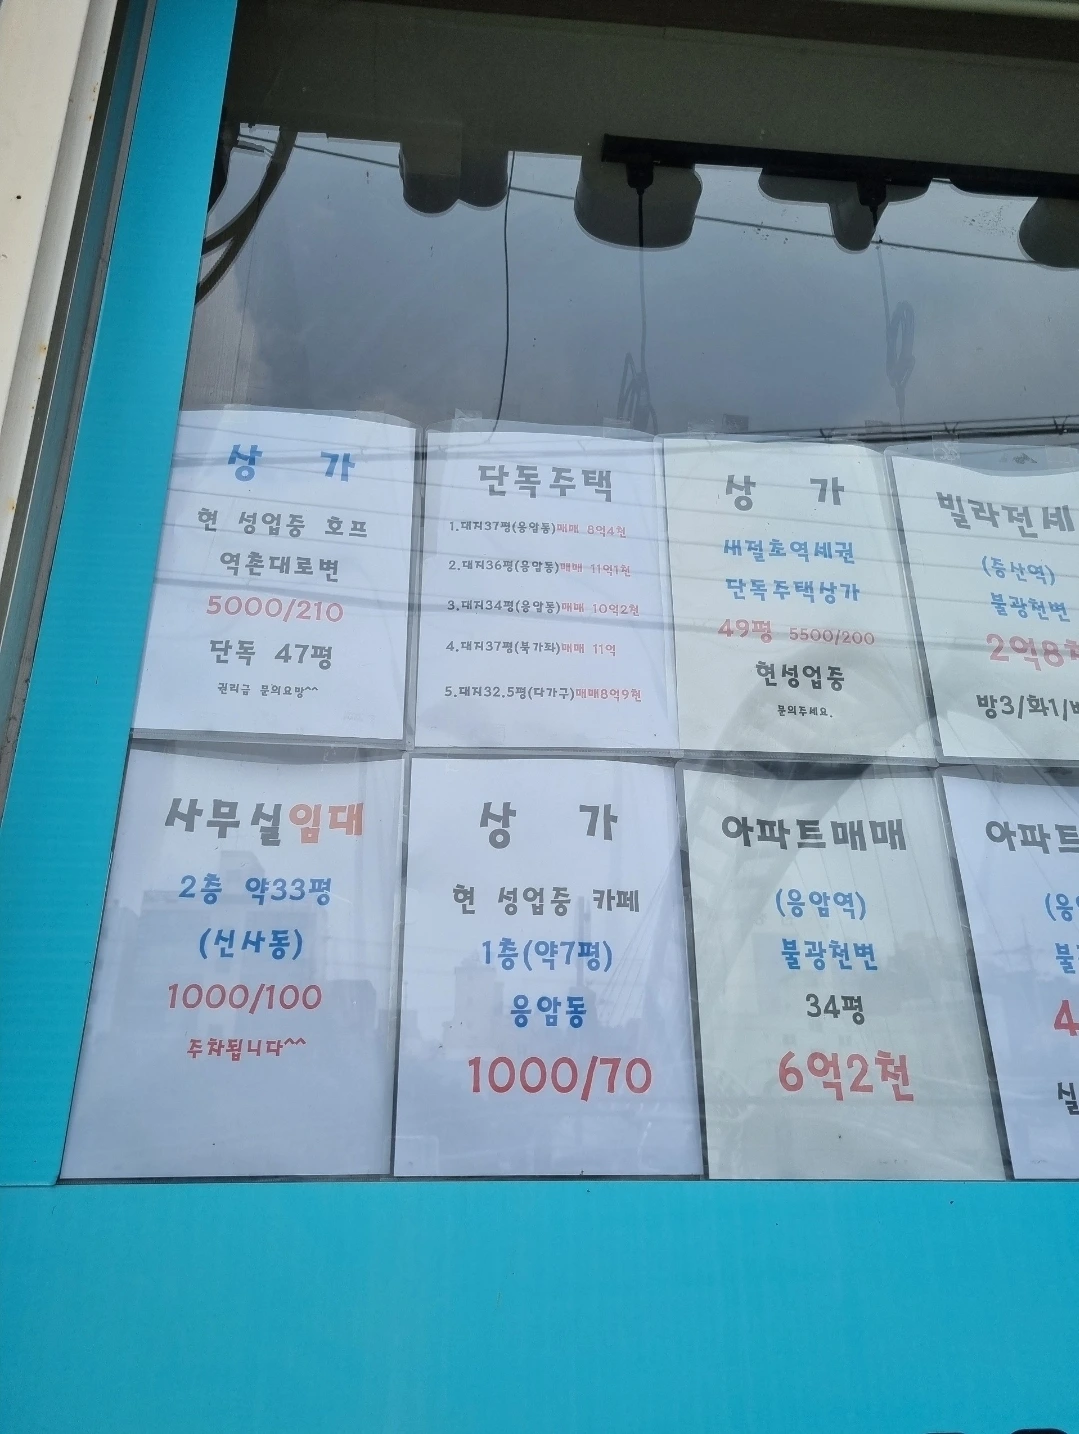 상 가
현 성업중 호프
역촌대로변
5000/210
단독 47평
권리금 문의요망^^
단독주택
1.대지37평(응암동)매매 8억4천
2.대지36평(응암동)매매 11억1천
3.대지34평(응암동)매매 10억2천
4.대지37평(북가좌)매매 11억
5.대지32.5평(다가구)매매8억9천
상 가
새절초역세권
단독주택상가
49평 5500/200
현성업중
문의주세요.
빌라전세
(증산역)
불광천변
2억8
방3/화1/
사무실임대
2층 약33평
(신사동)
1000/100
주차됩니다^^
상 가
현 성업중 카페
1층(약7평)
응암동
1000/70
아파트매매
(응암역)
불광천변
34평
6억2천
아파트
(응
불
4
실